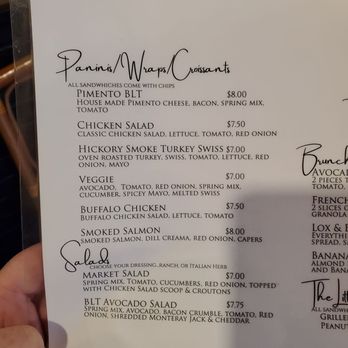 Paninis/Wraps/Croissants
ALL SANDWHICHES COME WITH CHIPS
PIMENTO BLT $8.00
HOUSE MADE PIMENTO CHEESE, BACON, SPRING MIX,
TOMATO
CHICKEN SALAD $7.50
CLASSIC CHICKEN SALAD, LETTUCE, TOMATO, RED ONION
HICKORY SMOKE TURKEY SWISS $7.00
OVEN ROASTED TURKEY, SWISS, TOMATO, LETTUCE, RED
ONION, MAYO
VEGGIE $7.00
AVOCADO, TOMATO, RED ONION, SPRING MIX,
CUCUMBER, SPICEY MAYO, MELTED SWISS
BUFFALO CHICKEN $7.50
BUFFALO CHICKEN SALAD, LETTUCE, TOMATO
SMOKED SALMON $8.00
SMOKED SALMON, DILL CREAMA, RED ONION, CAPERS
Salads
CHOOSE YOUR DRESSING..RANCH, OR ITALIAN HERB
MARKET SALAD $7.00
SPRING MIX, TOMATO, CUCUMBERS, RED ONION, TOPPED
WITH CHICKEN SALAD SCOOP & CROUTONS
BLT AVOCADO SALAD $7.75
SPRING MIX, AVOCADO, BACON CRUMBLE, TOMATO, RED
ONION, SHREDDED MONTERAY JACK & CHEDDAR
Brunch
AVOCA
2 PIECES T
TOMATO,
FRENCH
2 SLICES O
GRANOLA
LOX & B
EVERYTH
SPREAD, S
BANANA
ALMOND
AND BANA
The Litt
ALL SANDW
GRILLE
PEANUT